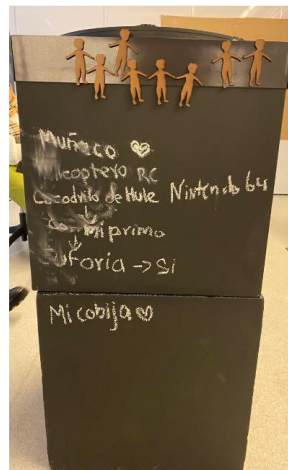 Muñeco ♡
Helicoptero RC
Cocodrilo de Hule Nintendo 64
mi primo
Euforia -> Si
Mi cobija ♡